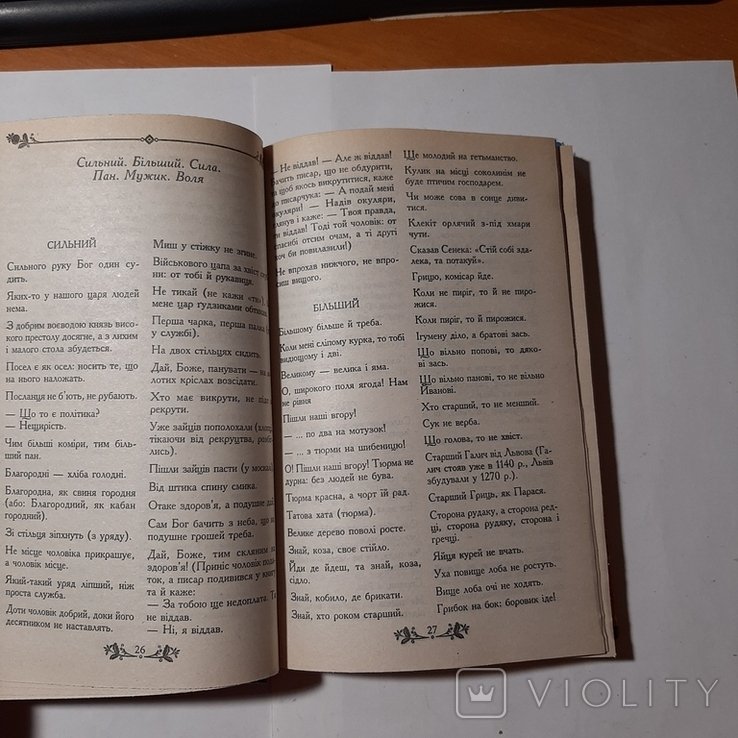 Сильний. Більший. Сила.
Пан. Мужик. Воля
СИЛЬНИЙ
Сильного руку Бог один су-
дить.
Яких-то у нашого царя людей
нема.
З добрим воєводою князь висо-
кого престолу досягне, а з лихим
і малого стола збудеться.
Посел є як осел: носить те, що
на нього наложать.
Посланця не б'ють, не рубають.
— Що то є політика?
— Нещирість.
Чим більші коміри, тим біль-
ший пан.
Благородні — хліба голодні.
Благородна, як свиня городня
(або: Благородний, як кабан
городний).
Зі стільця зіпхнуть (з уряду).
Не місце чоловіка прикрашує,
а чоловік місце.
Який-такий уряд ліпший, ніж
проста служба.
Доти чоловік добрий, доки його
десятником не наставлять.
Миш у стіжку не згине.
Військового цапа за хвіст
ни: от тобі й рукавиця.
Не тикай (не кажи «ти»),
мене цар ґудзиками
Перша чарка, перша палка
у службі).
На двох стільцях сидить.
Дай, Боже, панувати — на
лотих кріслах возсідати.
Хто має викрути, не піде
рекрути.
Уже зайців пополохали
тікаючи від рекруцтва,
лись).
Пішли зайців пасти (у москалі).
Від штика спину смика.
Отаке здоров'я, а подушне дай.
Сам Бог бачить з неба, що на
подушне грошей треба.
Дай, Боже, тим скляним на
здоров'я! (Приніс чоловік подa-
ток, а писар подивився у книгу
та й каже:
— За тобою ще недоплата. Та
— Ні, я віддав.
26
— Не віддав! — Але ж віддав!
Бачить писар, що не обдурити,
на щоб якось викрутитися, каже
до писарчука: — А подай мені
окуляри! — Надів окуляри,
глянув і каже: — Твоя правда,
віддав! Тоді той чоловік: от
спасибі отсим очам, а ті другі
хоч би повилазили!)
Не впрохав нижчого, не впро-
сиш вищого.
БІЛЬШИЙ
Більшому більше й треба.
Коли мені сліпому курка, то тобі
видющому і дві.
Великому — велика і яма.
О, широкого поля ягода! Нам
не рівня
Пішли нашi вгору!
— ... по два на мотузок!
— ... з тюрми на шибеницю!
О! Пішли наші вгору! Тюрма не
дурна: без людей не бува.
Тюрма красна, а чорт їй рад.
Татова хата (тюрма).
Велике дерево поволі росте.
Знай, коза, своє стійло.
Йди де йдеш, та знай, коза,
сідло.
Знай, кобило, де брикати.
Знай, хто роком старший.
Ще молодий на гетьманство.
Кулик на місці соколинім не
буде птичим господарем.
Чи може сова в сонце диви-
тися.
Клекіт орлячий з-під хмари
чути.
Сказав Сенека: «Стій собі зда-
лека, та потакуй».
Грицю, комісар йде.
Коли не пиріг, то й не пиро-
жися.
Коли пиріг, то й пирожися.
Ігумену діло, а братові зась.
Що вільно попові, то дяко-
ві зась.
Що вільно панові, то не вільно
Йванові.
Хто старший, то не менший.
Сук не верба.
Що голова, то не хвіст.
Старший Галич від Львова (Га-
лич стояв уже в 1140 р., Львів
збудували у 1270 р.).
Старший Гриць, як Парася.
Сторона рудаку, а сторона ред-
ці, сторона рудяку, сторона і
гречці.
Яйця курей не вчать.
Уха повище лоба не ростуть.
Вище лоба очі не ходять.
Грибок на бок: боровик іде!
27
VIOLITY